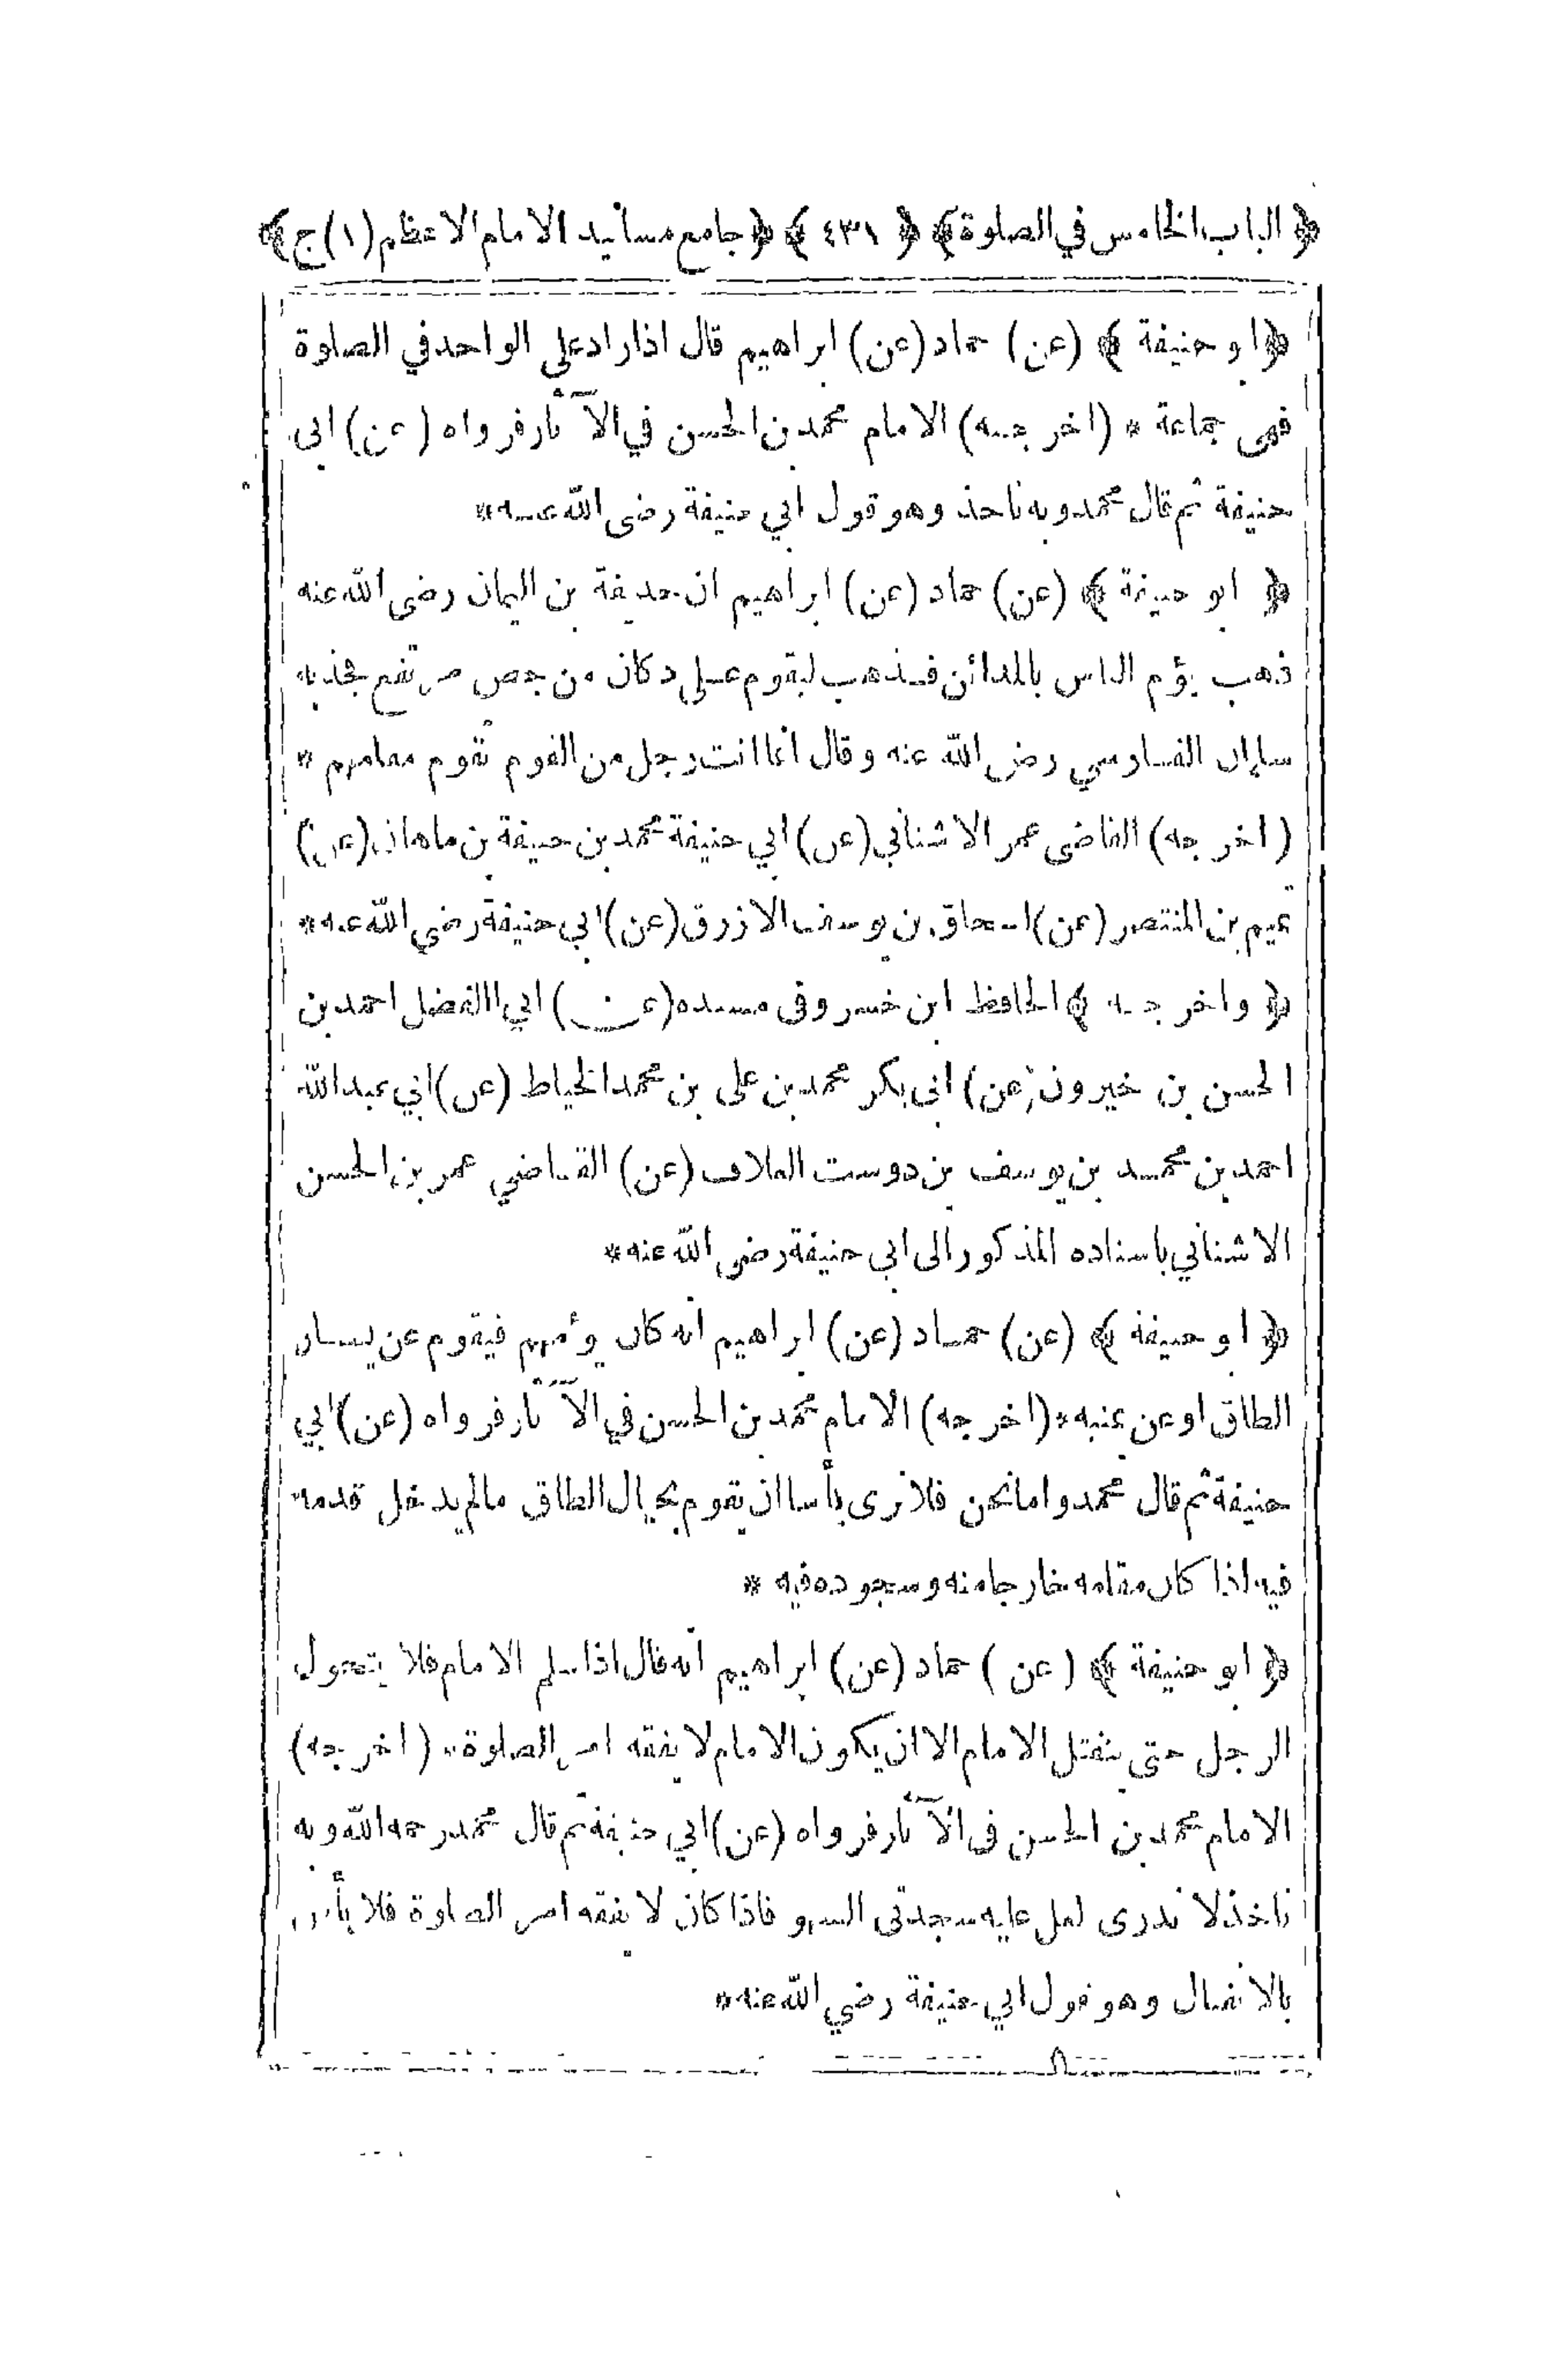 ﴿ الباب الخامس في الصلوة ﴾ ﴿ ٤٣١ ﴾ ﴿ جامع مسانيد الامام الاعظم (١) ج ﴾
﴿ ابو حنيفة ﴾ (عن) حماد (عن) ابراهيم قال اذا زاد على الواحد في الصلوة
فهى جماعة * (اخرجه) الامام محمد بن الحسن في الآثار فرواه (عن) ابى
حنيفة ثم قال محمد وبه ناخذ وهو قول ابي حنيفة رضى الله عنه *
﴿ ابو حنيفة ﴾ (عن) حماد (عن) ابراهيم ان حذيفة بن اليمان رضى الله عنه
ذهب يؤم الناس بالمدائن فذهب ليقوم على دكان من جص مرتفع فجذبه
سلمان الفارسي رضى الله عنه وقال انما انت رجل من القوم تقوم مقامهم *
(اخرجه) القاضى عمر الاشناني (عن) ابي حنيفة محمد بن حنيفة بن ماهان (عن)
تميم بن المنتصر (عن) اسحاق بن يوسف الازرق (عن) ابي حنيفة رضي الله عنه *
﴿ واخرجه ﴾ الحافظ ابن خسرو فى مسنده (عن) ابي الفضل احمد بن
الحسن بن خيرون (عن) ابى بكر محمد بن على بن محمد الخياط (عن) ابي عبد الله
احمد بن محمد بن يوسف بن دوست العلاف (عن) القاضي عمر بن الحسن
الاشناني باسناده المذكور الى ابي حنيفة رضى الله عنه *
﴿ ابو حنيفة ﴾ (عن) حماد (عن) ابراهيم انه كان يؤمهم فيقوم عن يسار
الطاق او عن يمينه * (اخرجه) الامام محمد بن الحسن في الآثار فرواه (عن) ابي
حنيفة ثم قال محمد واما نحن فلا نرى بأسا ان يقوم بحيال الطاق مالم يدخل قدمه
فيه اذا كان مقامه خارجا منه وسجوده فيه *
﴿ ابو حنيفة ﴾ (عن) حماد (عن) ابراهيم انه قال اذا سلم الامام فلا يتحول
الرجل حتى ينفتل الامام الا ان يكون الامام لا يفقه امر الصلوة * (اخرجه)
الامام محمد بن الحسن فى الآثار فرواه (عن) ابي حنيفة ثم قال محمد رحمه الله وبه
ناخذ لا ندرى لعل عليه سجدتى السهو فاذا كان لا يفقه امر الصلوة فلا بأس
بالانفتال وهو قول ابي حنيفة رضي الله عنه *